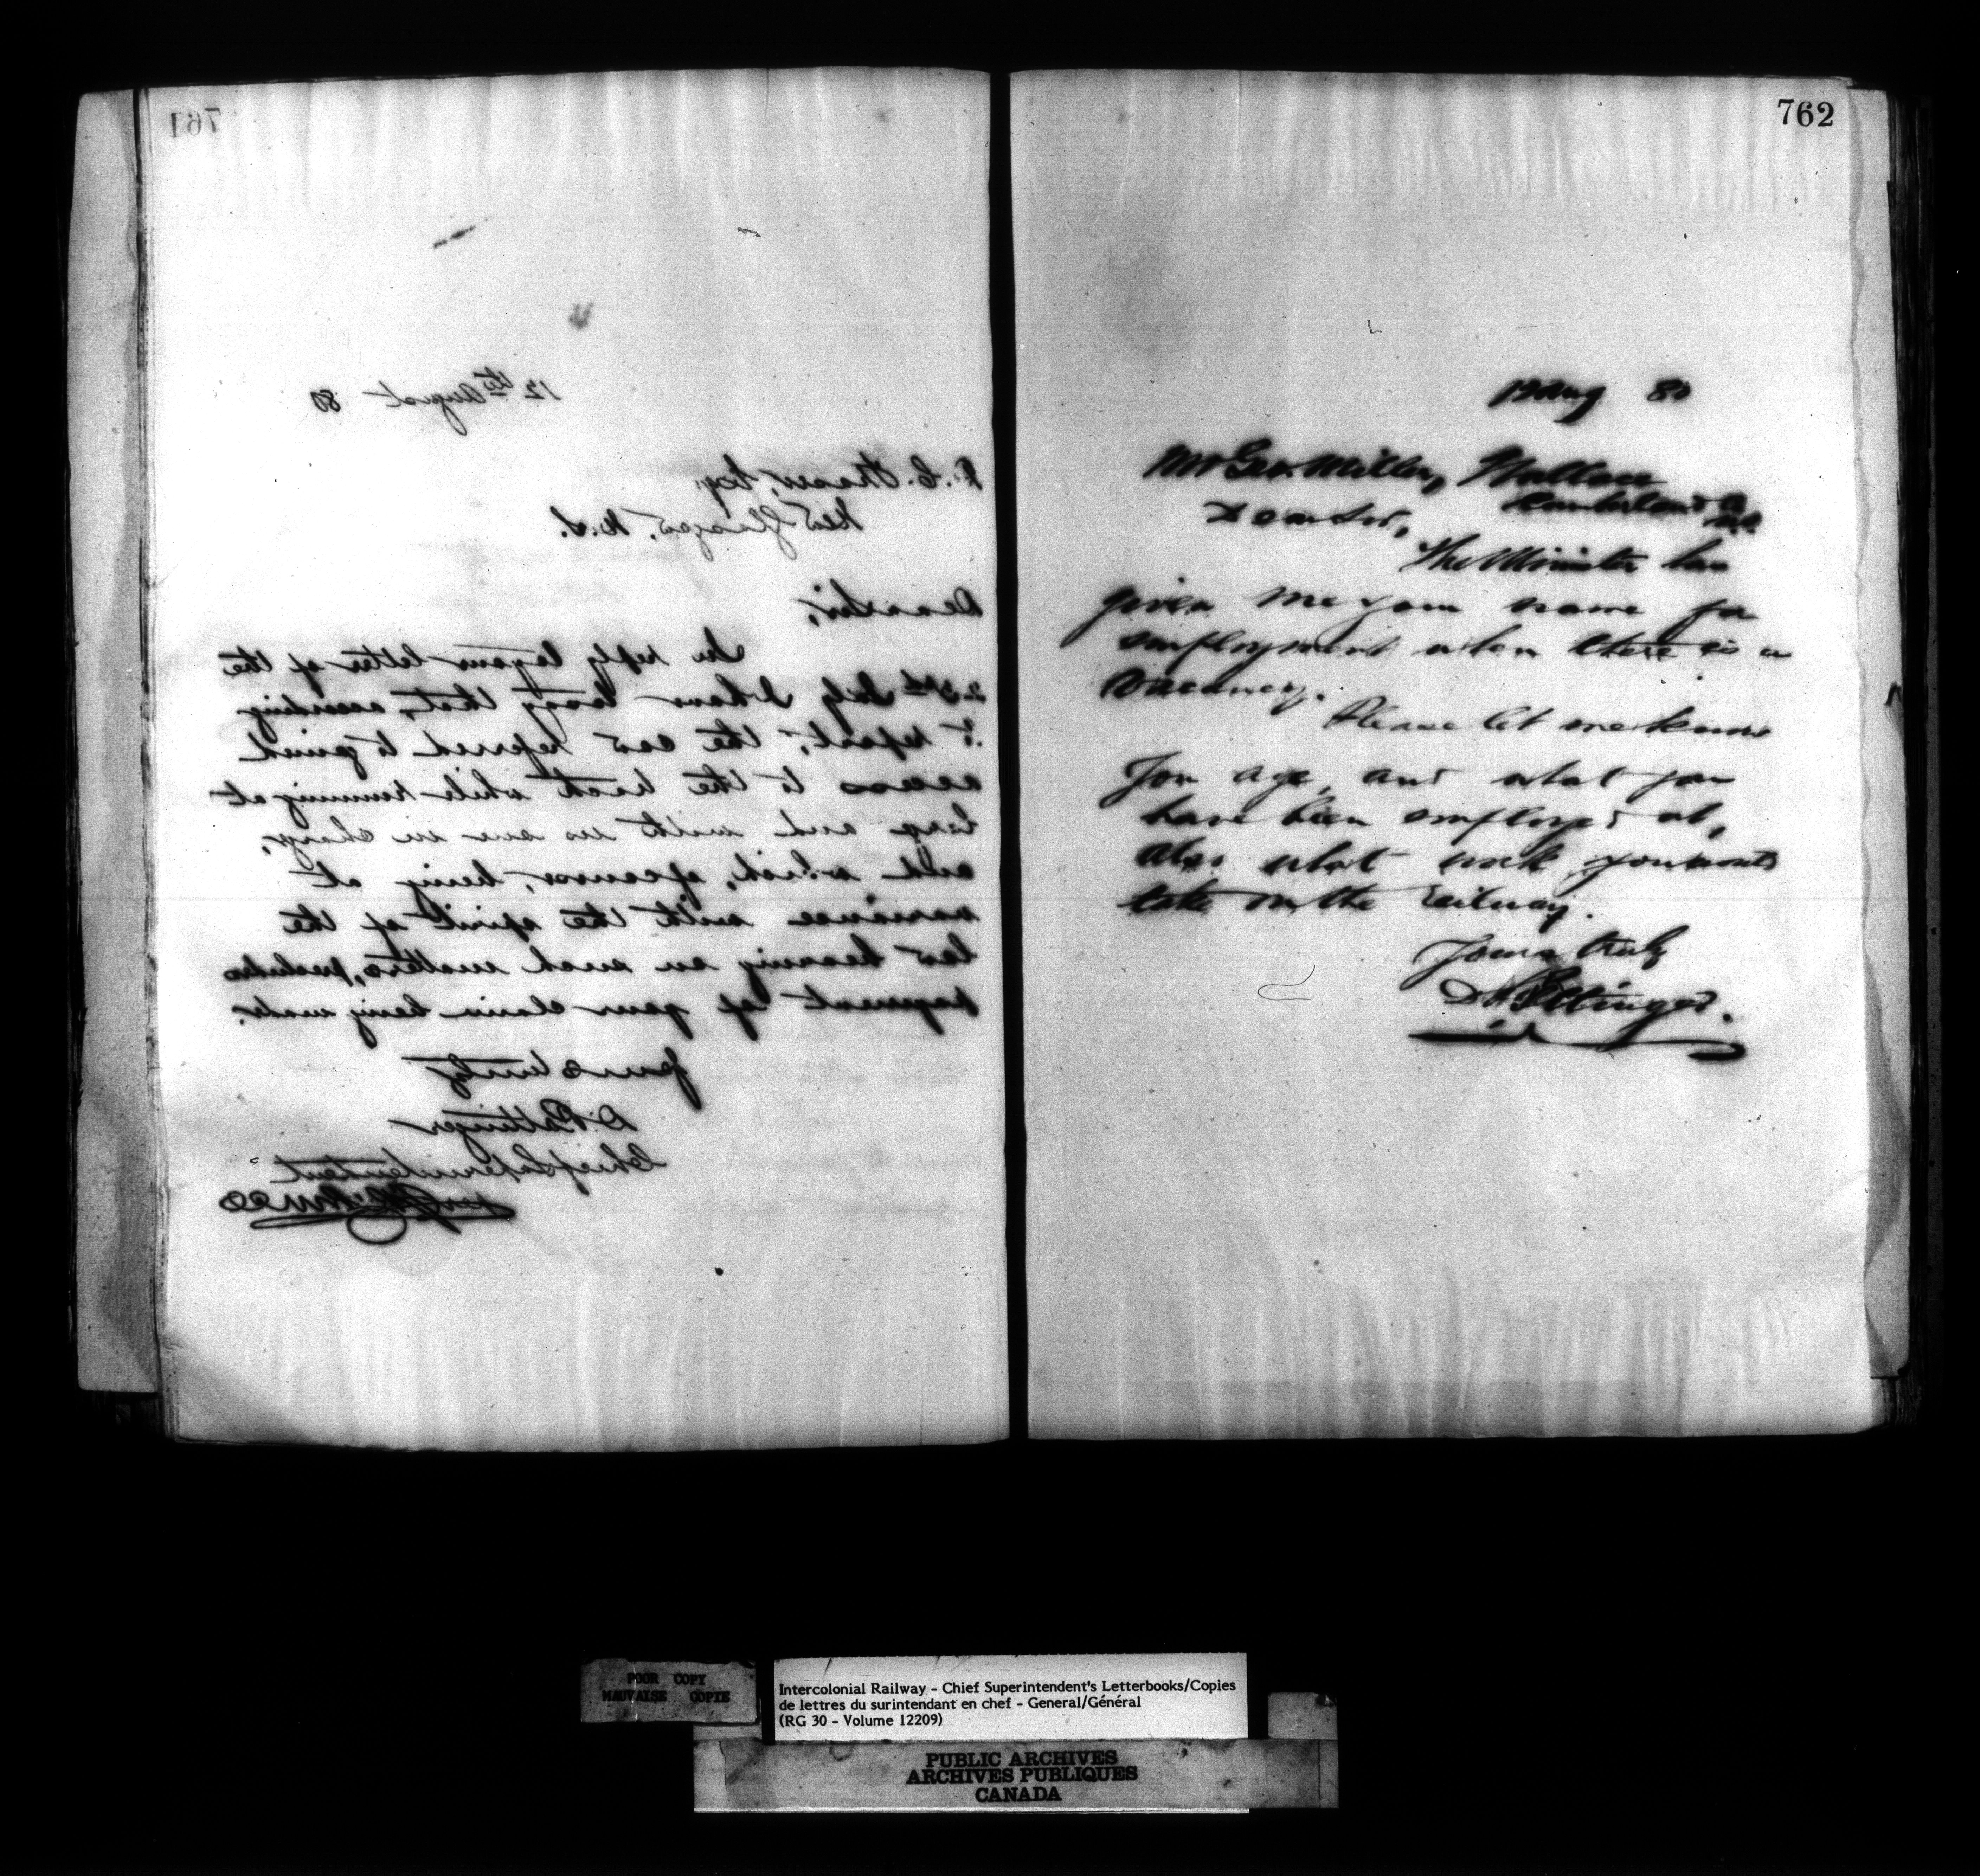 761
12th August 80
Fraser, Esq.
New Glasgow, N.S.
Dear Sir,
In reply to your letter of the
July I have to say that, according
to report, the cow referred to gained
access to the track while running at
large and with no one in charge,
and which, of course, being at
variance with the spirit of the
law bearing on such matters, precludes
payment of your claim being made.
Yours truly
D. Pottinger
Chief Superintendent
762
12 Aug 80
Mr Geo. Miller, Wallace
Cumberland Co
N.S.
Dear Sir,
The Minister has
given me your name for
employment when there is a
vacancy.
Please let me know
your age, and what you
have been employed at,
also what work you want to
take on the railway.
Yours truly
D. Pottinger.
POOR COPY
MAUVAISE COPIE
Intercolonial Railway - Chief Superintendent's Letterbooks/Copies
de lettres du surintendant en chef - General/Général
(RG 30 - Volume 12209)
PUBLIC ARCHIVES
ARCHIVES PUBLIQUES
CANADA